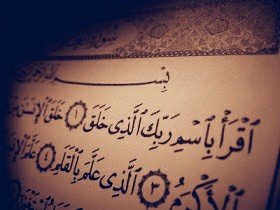 بِسْمِ
ٱقْرَأْ بِٱسْمِ رَبِّكَ ٱلَّذِى خَلَقَ ١ خَلَقَ ٱلْإِنسَـٰنَ
ٱلْأَكْرَمُ ٣ ٱلَّذِى عَلَّمَ بِٱلْقَلَمِ ٤ عَلَّمَ